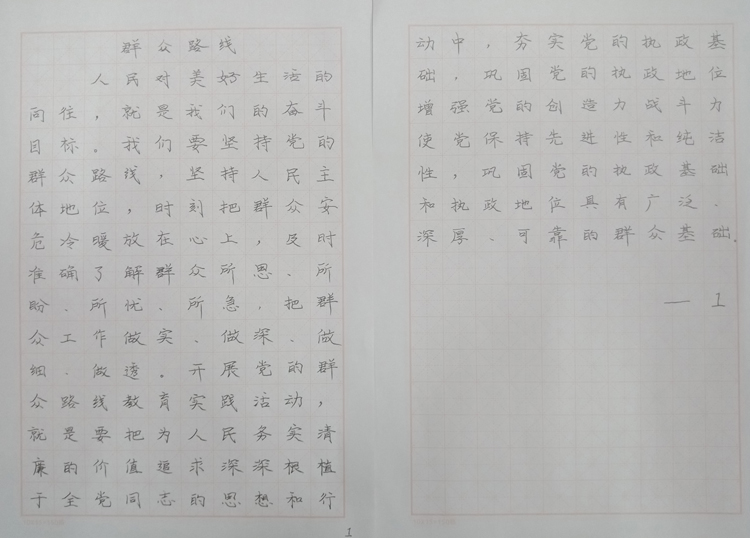 群众路线
人民对美好生活的
向往，就是我们的奋斗
目标。我们要坚持党的
群众路线，坚持人民主
体地位，时刻把群众安
危冷暖放在心上，及时
准确了解群众所思、所
盼、所忧、所急，把群
众工作做实、做深、做
细、做透。开展党的群
众路线教育实践活动，
就是要把为人民务实清
廉的价值追求深深根植
于全党同志的思想和行
1
动中，夯实党的执政基
础，巩固党的执政地位
增强党的创造力战斗力
使党保持先进性和纯洁
性，巩固党的执政基础
和执政地位具有广泛、
深厚、可靠的群众基础。
— 1